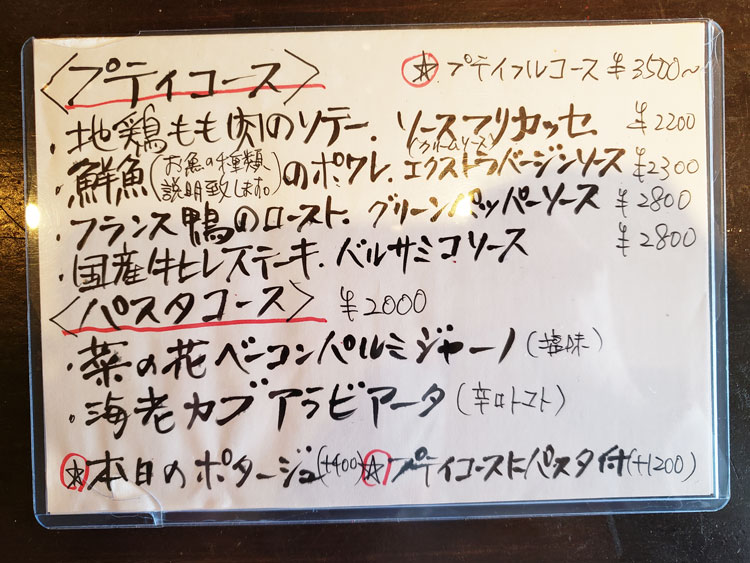 〈プティコース〉 ☆プティフルコース ¥3500〜
・地鶏もも肉のソテー.ソースフリカッセ. ¥2200
(クリームソース)
・鮮魚(お魚の種類説明致します。)のポワレ.エクストラバージンソース ¥2300
・フランス鴨のロースト.グリーンペッパーソース ¥2800
・国産牛ヒレステーキ.バルサミコソース ¥2800
〈パスタコース〉 ¥2000
・菜の花ベーコンパルミジャーノ(塩味)
・海老カブアラビアータ(辛口トマト)
☆本日のポタージュ(+400) ☆プティコースにパスタ付(+1200)